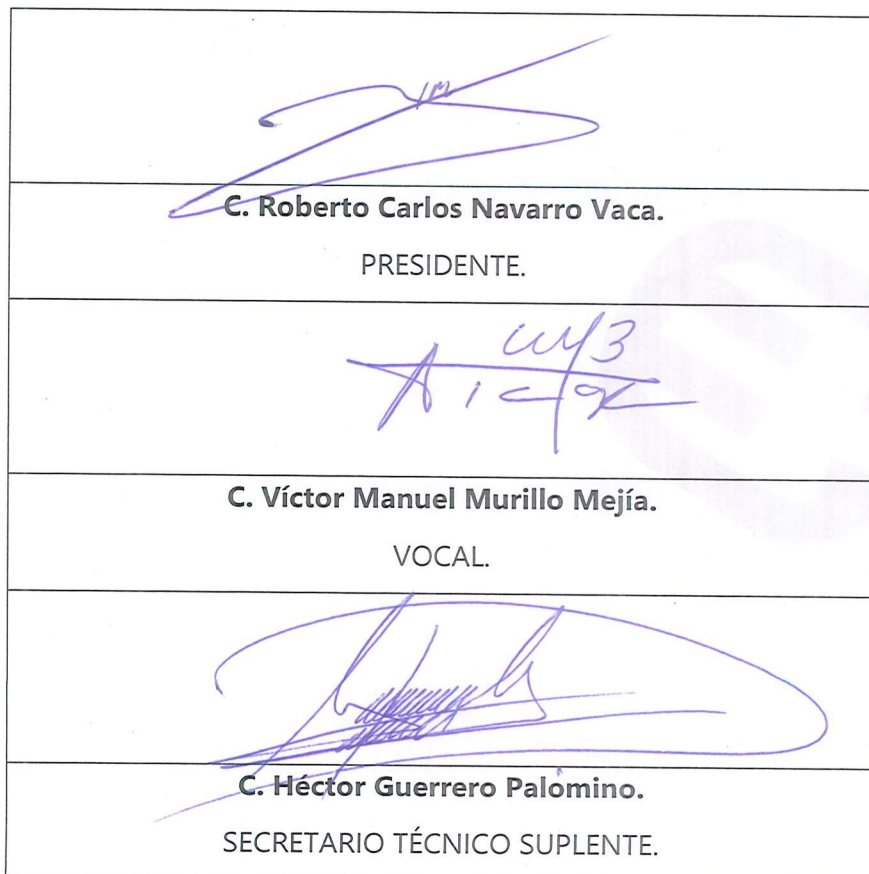 C. Roberto Carlos Navarro Vaca.
PRESIDENTE.
C. Víctor Manuel Murillo Mejía.
VOCAL.
C. Héctor Guerrero Palomino.
SECRETARIO TÉCNICO SUPLENTE.